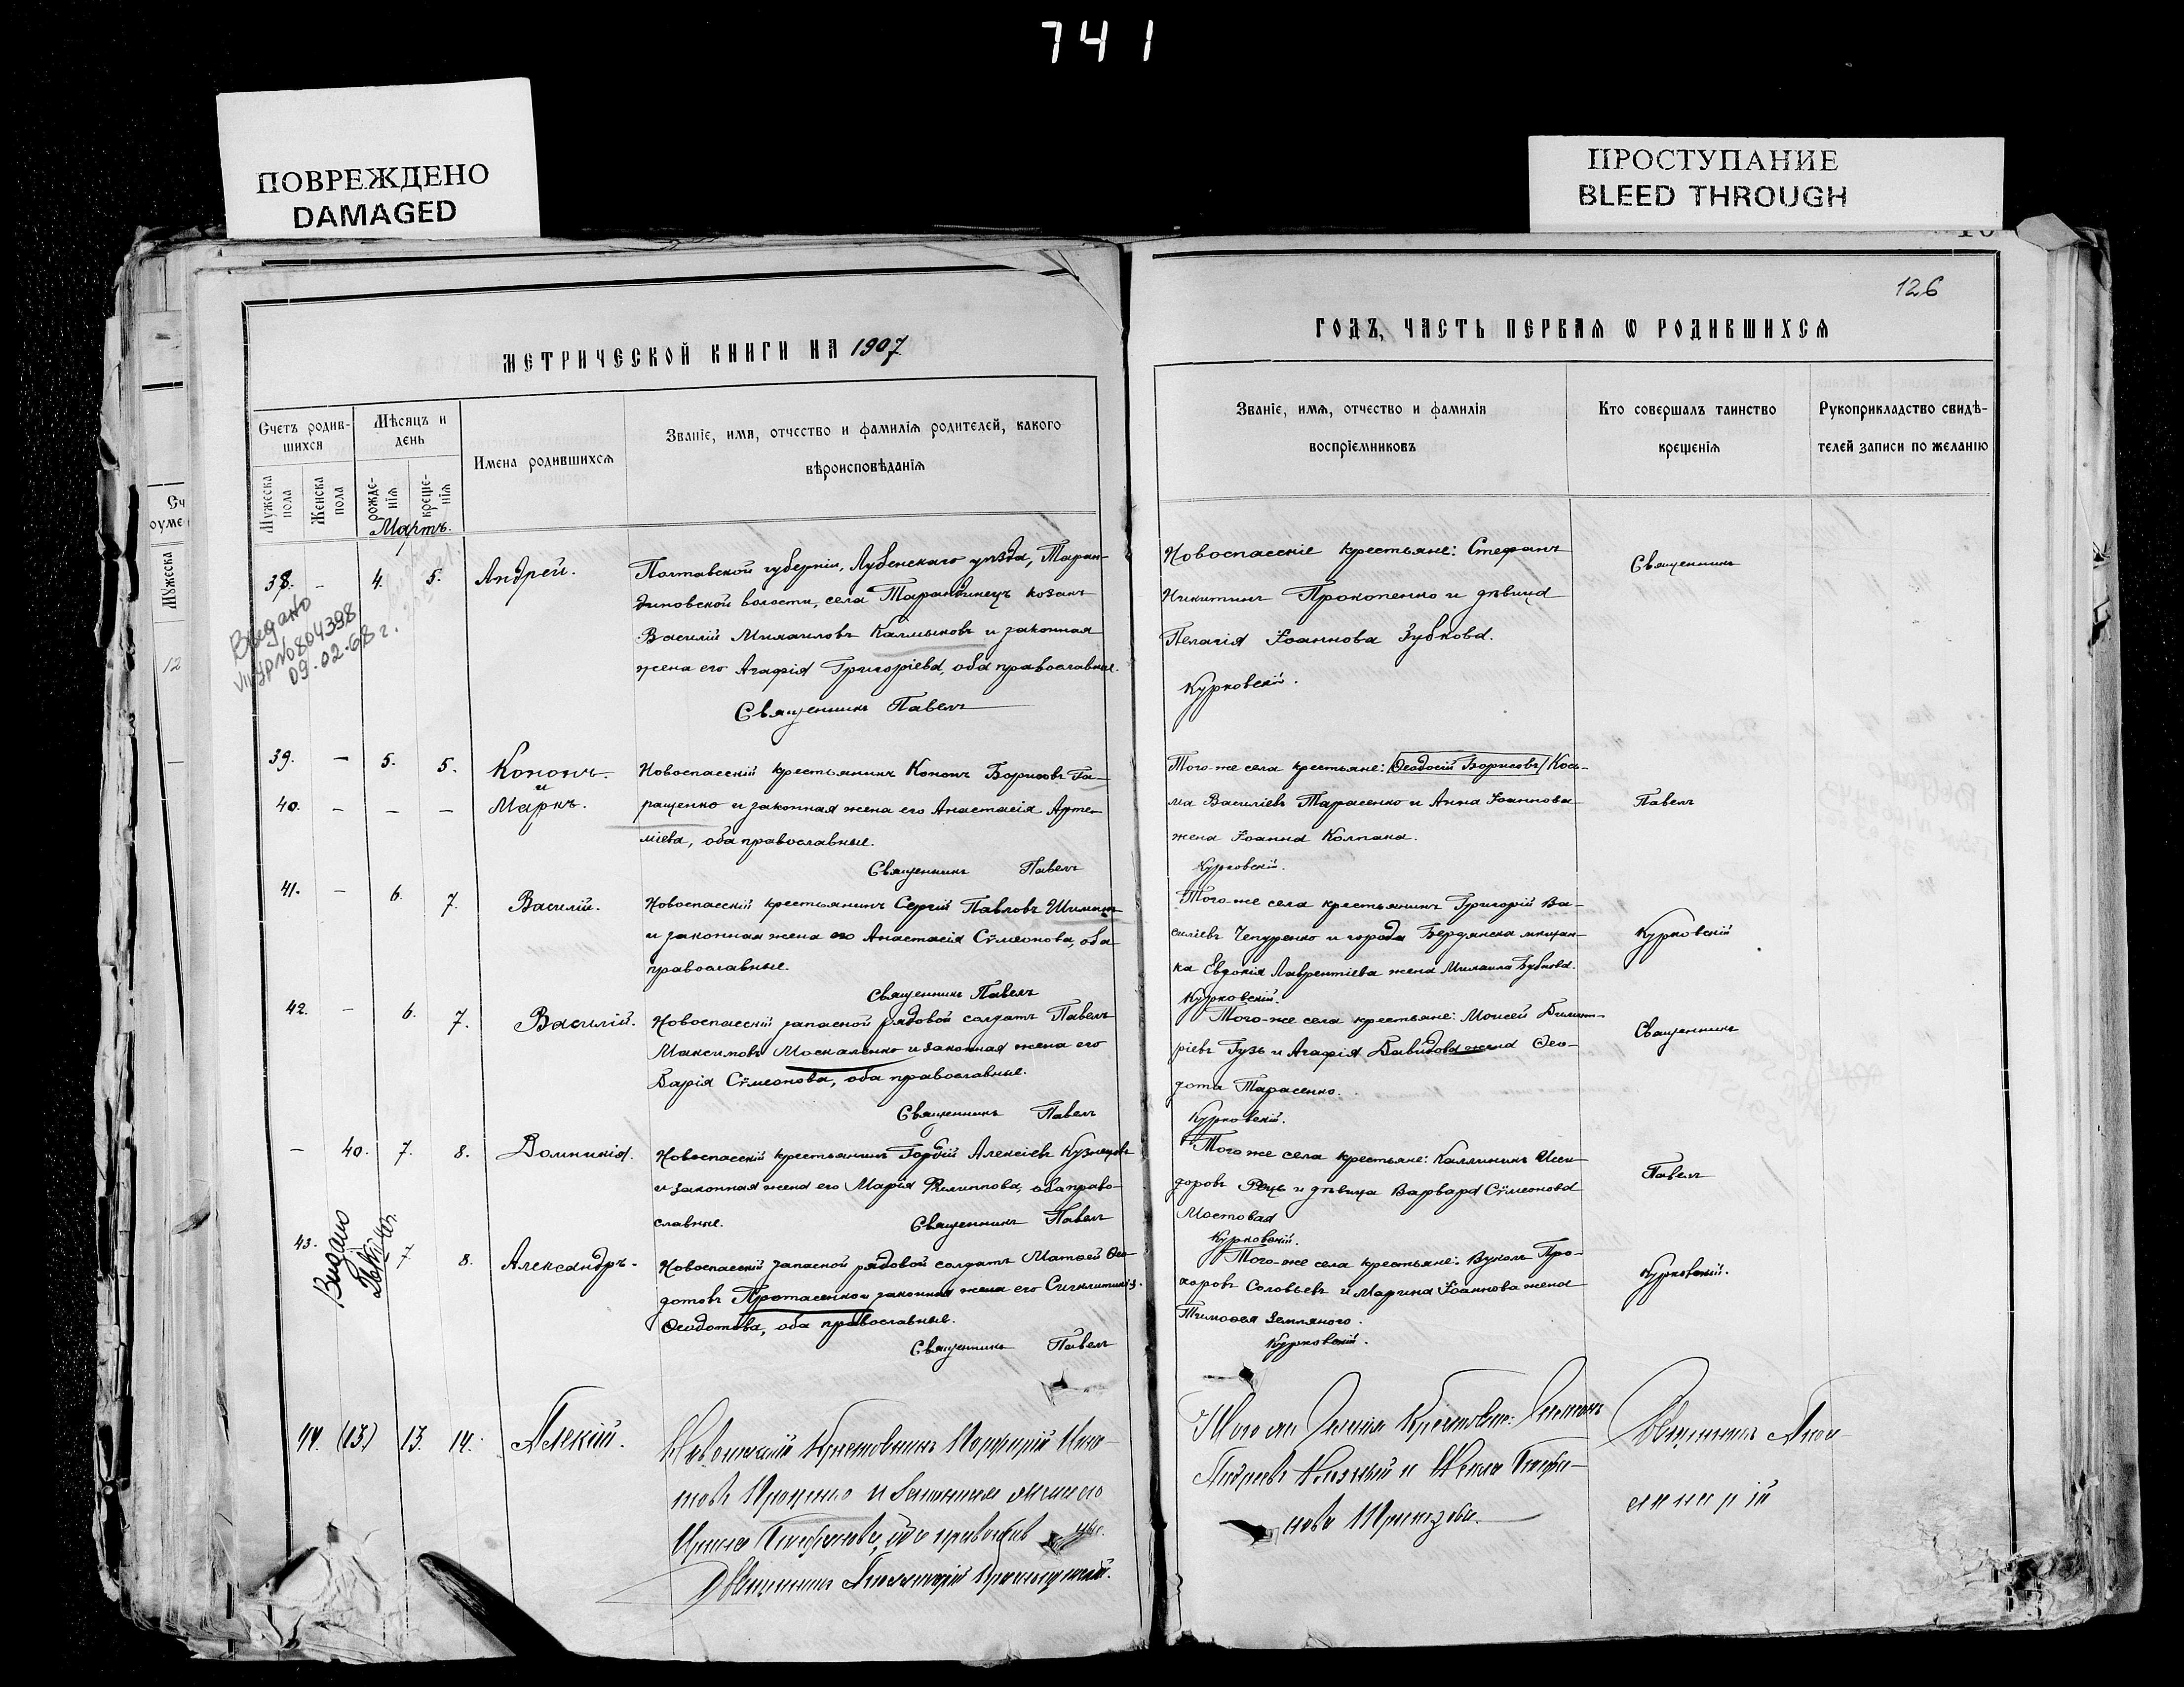 741
ПОВРЕЖДЕНО
DAMAGED
ПРОСТУПАНИЕ
BLEED THROUGH
126
МЕТРИЧЕСКОЙ КНИГИ НА 1907
ГОДЪ, ЧАСТЬ ПЕРВАЯ Ѡ РОДИВШИХСЯ
Счетъ родив-
шихся
Мужеска
пола
Женска
пола
Мѣсяцъ и
день
рожде-
нія
креще-
нія
Имена родившихся
Званіе, имя, отчество и фамилія родителей, какого
вѣроисповѣданія
Званіе, имя, отчество и фамилія
воспріемниковъ
Кто совершалъ таинство
крещенія
Рукоприкладство свидѣ-
телей записи по желанію
Мартъ.
38. - 4. 5. Андрей.
Полтавской губерніи, Лубенскаго уѣзда, Таран-
диновской волости, села Тарандинецъ козакъ
Василій Михаиловъ Калмыковъ и законная
жена его Агафія Григоріева, оба православные.
Священникъ Павелъ
Новоспасскіе крестьяне: Стефанъ
Никитинъ Прокопенко и дѣвица
Пелагія Іоаннова Зубкова.
Курковскій.
Священникъ
Выдано
№804398
09.02.68 г.
39. - 5. 5. Кононъ
и
40. - - - Маркъ.
Новоспасскій крестьянинъ Кононъ Борисовъ Га-
ращенко и законная жена его Анастасія Арте-
міева, оба православные.
Священникъ Павелъ
Того-же села крестьяне: Ѳеодосій Борисовъ/Кось-
ма Василіевъ Тарасенко и Анна Іоаннова
жена Іоанна Колпака.
Курковскій.
Павелъ
41. - 6. 7. Василій.
Новоспасскій крестьянинъ Сергій Павловъ Шимкинъ
и законная жена его Анастасія Сѵмеонова, оба
православные.
Священникъ Павелъ
Того-же села крестьянинъ Григорій Ва-
силіевъ Чепуренко и города Бердянска мѣщан-
ка Евдокія Лаврентіева жена Михаила Бубнова.
Курковскій.
Курковскій
42. - 6. 7. Василій.
Новоспасскій запасной рядовой солдатъ Павелъ
Максимовъ Москаленко и законная жена его
Дарія Сѵмеонова, оба православные.
Священникъ Павелъ
Того-же села крестьяне: Моисей Димит-
ріевъ Гузь и Агафія Давидова жена Ѳео-
дота Тарасенко.
Курковскій.
Священникъ
- 40. 7. 8. Домникія.
Новоспасскій крестьянинъ Гордій Алексіевъ Кузнецовъ
и законная жена его Марія Филиппова, оба право-
славные.
Священникъ Павелъ
Того же села крестьяне: Каллиникъ Иси-
доровъ Рецъ и дѣвица Варвара Сѵмеонова
Мостовая
Курковскій.
Павелъ
43. 7 8. Александръ.
Видано
Новоспасскій запасной рядовой солдатъ Матѳей Ѳео-
дотовъ Протасенко и законная жена его Сигклитикія
Ѳеодотова, оба православные.
Священникъ Павелъ
Того-же села крестьяне: Вуколъ Про-
хоровъ Соловьевъ и Марина Іоаннова жена
Тимоѳея Земляного.
Курковскій.
Курковскій.
44. (13.) 13. 14. Алексій.
Новоспаскій Крестьянинъ Порфирій
Проценко и законная жена его
Ирина Стефанова, оба православные.
Священникъ
Крестьяне:
Андреевъ и Ѳекла Стефа-
нова
Священникъ